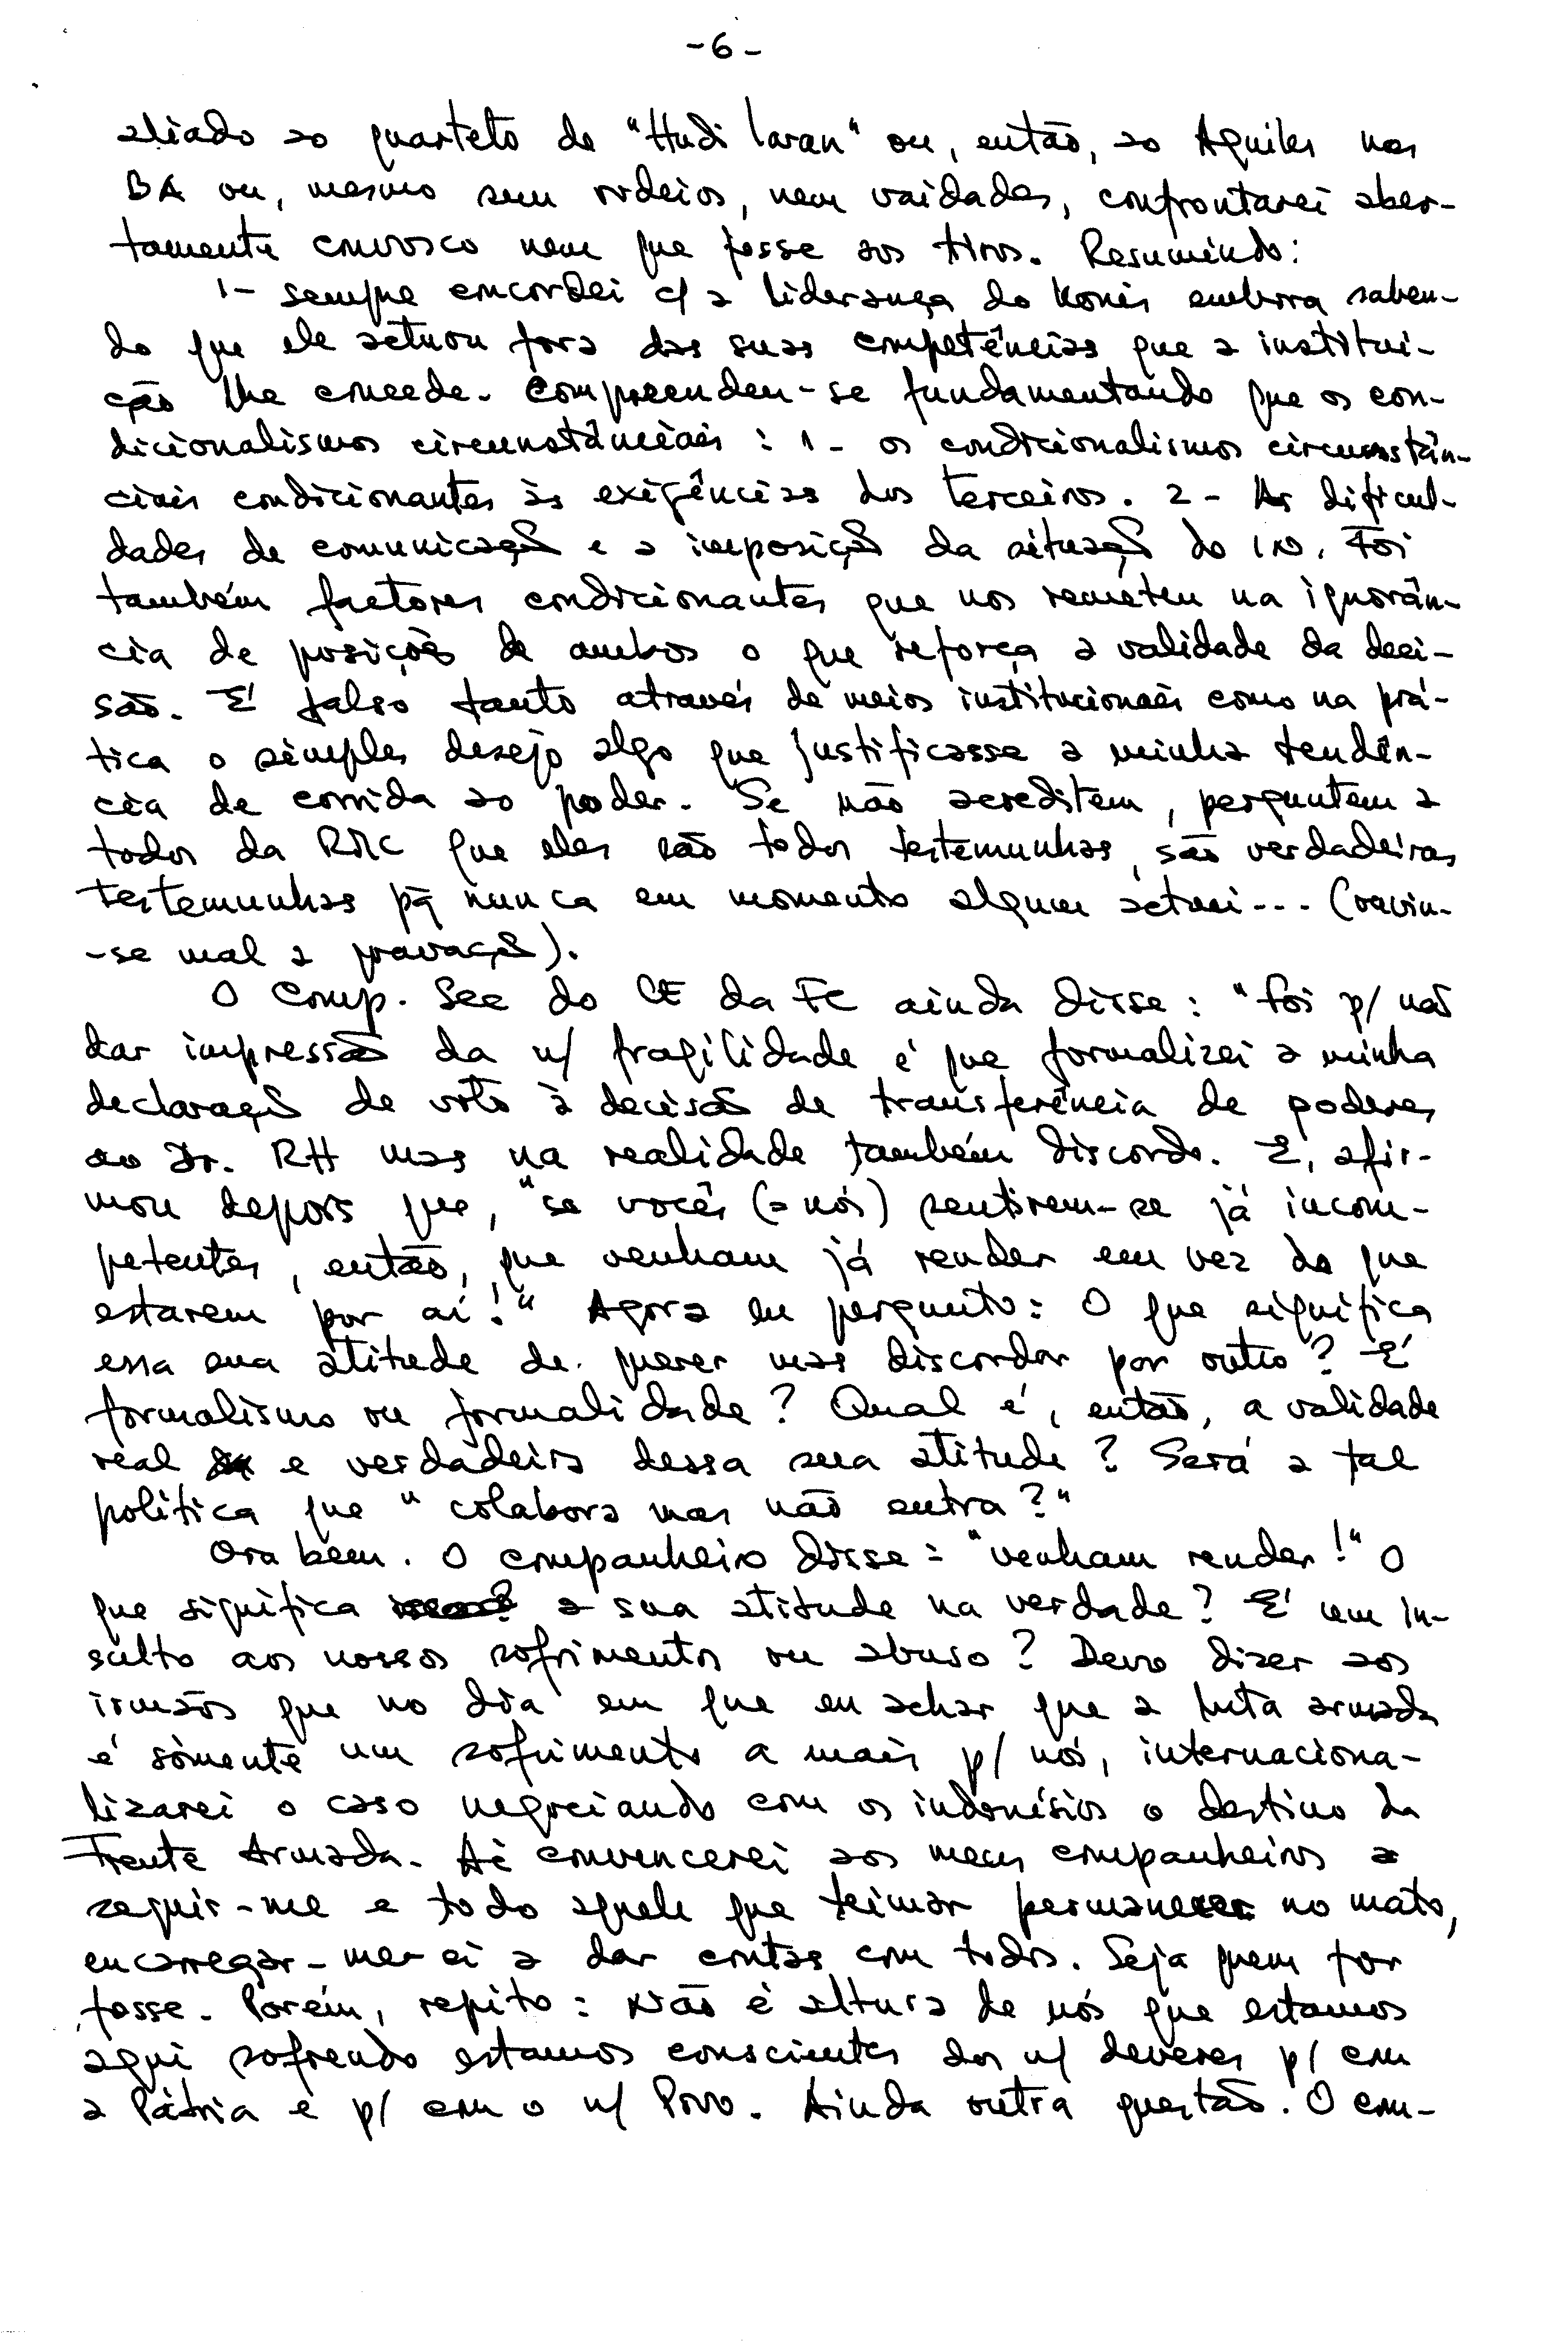 -6-
aliado ao quarteto de "Hudi laran" ou, então, ao Aquiles nas
BA ou, mesmo sem rodeios, nem vaidades, confrontarei aber-
tamente convosco nem que fosse aos tiros. Resumindo:
1- sempre concordei c/ a liderança do Konis embora saben-
do que ele actuou fora das suas competências que a institui-
ção lhe concede. Compreendeu-se fundamentando que os con-
dicionalismos circunstânciais: 1- os condicionalismos circunstân-
ciais condicionantes às exigências dos terceiros. 2- As dificul-
dades de comunicação e a imposição da situação do IN. Foi
também factores condicionantes que nos remeteu na ignorân-
cia de posições de ambos o que reforça a validade da deci-
são. É falso tanto através de meios institucionais como na prá-
tica o simples desejo algo que justificasse a minha tendên-
cia de corrida ao poder. Se não acreditem, perguntem a
todos da RMC que eles são todos testemunhas, são verdadeiras
testemunhas pq nunca em momento algum actuei... (
-se mal a gravação).
O Comp. Sec do CE da FC ainda disse: "foi p/ não
dar impressão da n/ fragilidade é que formalizei a minha
declaração de voto à decisão de transferência de poderes
ao Dr. RH mas na realidade também discordo. E, afir-
mou depois que, "se vocês (=nós) sentirem-se já incom-
petentes, então, que venham já render em vez do que
estarem por aí!" Agora eu pergunto: O que significa
essa sua atitude de querer mas discordar por outro? É
formalismo ou formalidade? Qual é, então, a validade
real e verdadeira dessa sua atitude? Será a tal
política que "colabora mas não entra?"
Ora bem. O companheiro disse: "venham render!" O
que significa a sua atitude na verdade? É um in-
sulto aos nossos sofrimentos ou abuso? Devo dizer aos
irmãos que no dia em que eu achar que a luta armada
é sòmente um sofrimento a mais p/ nós, internaciona-
lizarei o caso negociando com os indonésios o destino da
Frente Armada. Aí convencerei aos meus companheiros a
seguir-me e todo aquele que teimar permanecer no mato,
encarregar-mer ei a dar contas com todos. Seja quem for
fosse. Porém, repito: Não é altura de nós que estamos
aqui sofrendo estamos conscientes dos n/ deveres p/ com
a Pátria e p/ com o n/ Povo. Ainda outra questão. O com-